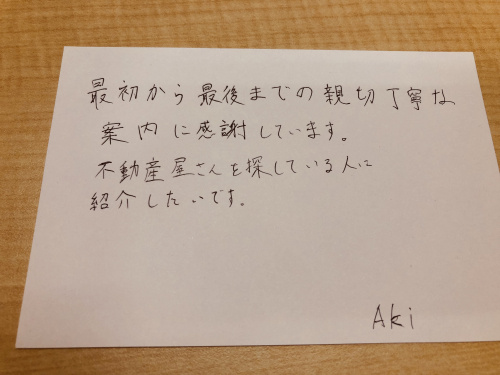 最初から最後までの親切丁寧な
案内に感謝しています。
不動産屋さんを探している人に
紹介したいです。
Aki